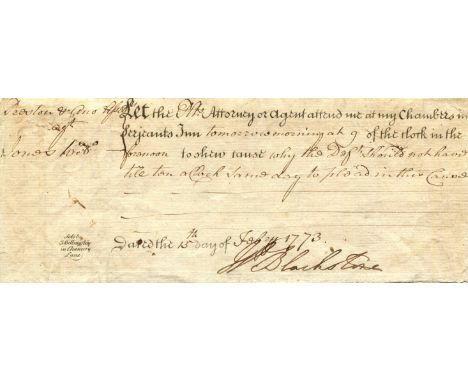 Preston & Uno
agt
Jones
Let the Attorney or Agent attend me at my Chambers in
Serjeants Inn tomorrow morning at 9 of the Clock in the
forenoon to shew cause why the Deft should not have
till ten o Clock same day to plead in this Cause
Dated the 15th day of Feby 1773.
Wm Blackstone
Sold by
in Chancery
Lane